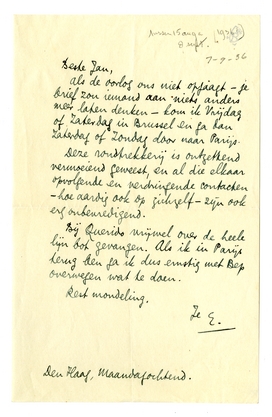 7-9-36
Beste Jan,
Als de oorlog ons niet opjaagt – je
brief zou iemand aan niets anders
meer laten denken – kom ik Vrijdag
of Zaterdag in Brussel en ga dan
Zaterdag of Zondag door naar Parijs.
Deze rondtrekkerij is ontzettend
vermoeiend geweest, en al die elkaar
opvolgende en verdringende contacten
– hoe aardig ook op zichzelf – zijn ook
erg onbevredigend.
Bij Querido vrijwel over de heele
lijn bot gevangen. Als ik in Parijs
terug ben ga ik dus ernstig met Bep
overwegen wat te doen.
Rest mondeling.
Je E.
Den Haag, Maandagochtend.